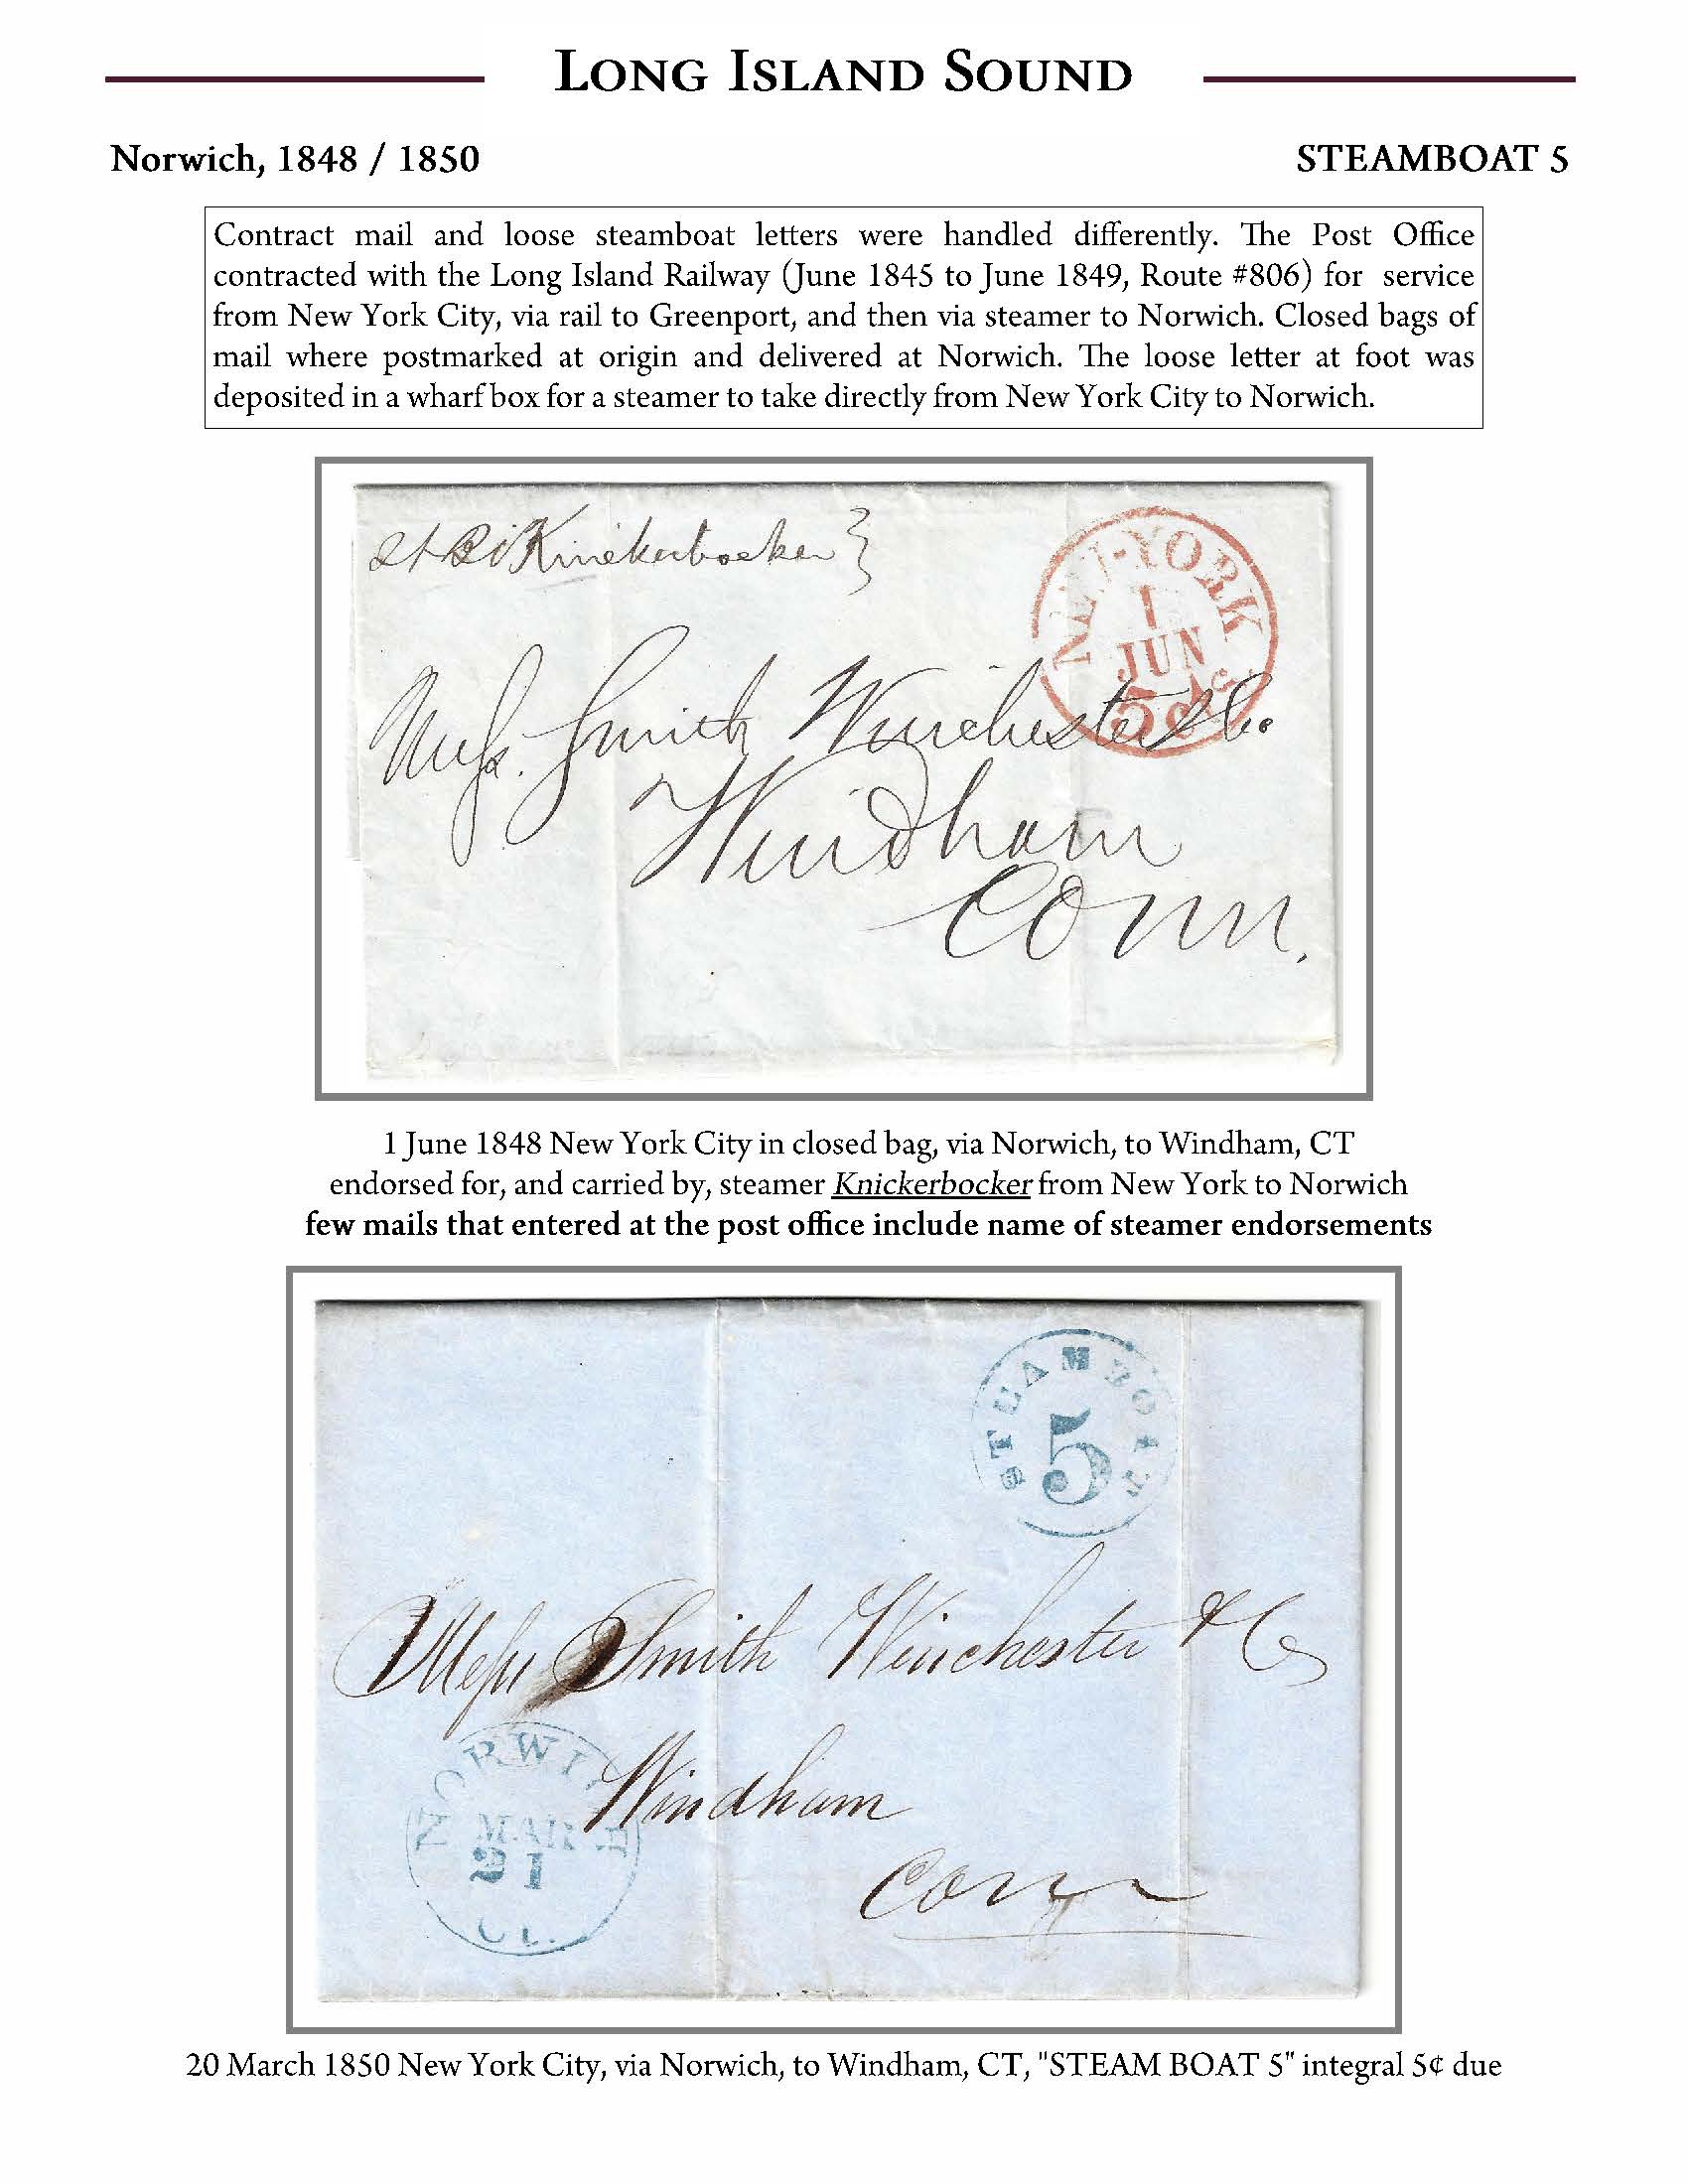 LONG ISLAND SOUND
Norwich, 1848 / 1850
STEAMBOAT 5
Contract mail and loose steamboat letters were handled differently. The Post Office
contracted with the Long Island Railway (June 1845 to June 1849, Route #806) for service
from New York City, via rail to Greenport, and then via steamer to Norwich. Closed bags of
mail where postmarked at origin and delivered at Norwich. The loose letter at foot was
deposited in a wharf box for a steamer to take directly from New York City to Norwich.
Knickerbocker
NEW-YORK
1
JUN
5 cts
Mess. Smith Winchester & Co
Windham
Conn.
1 June 1848 New York City in closed bag, via Norwich, to Windham, CT
endorsed for, and carried by, steamer Knickerbocker from New York to Norwich
few mails that entered at the post office include name of steamer endorsements
STEAMBOAT
5
Messrs Smith Winchester & Co
NORWICH
MAR
21
CT.
Windham
Conn
20 March 1850 New York City, via Norwich, to Windham, CT, "STEAM BOAT 5" integral 5¢ due